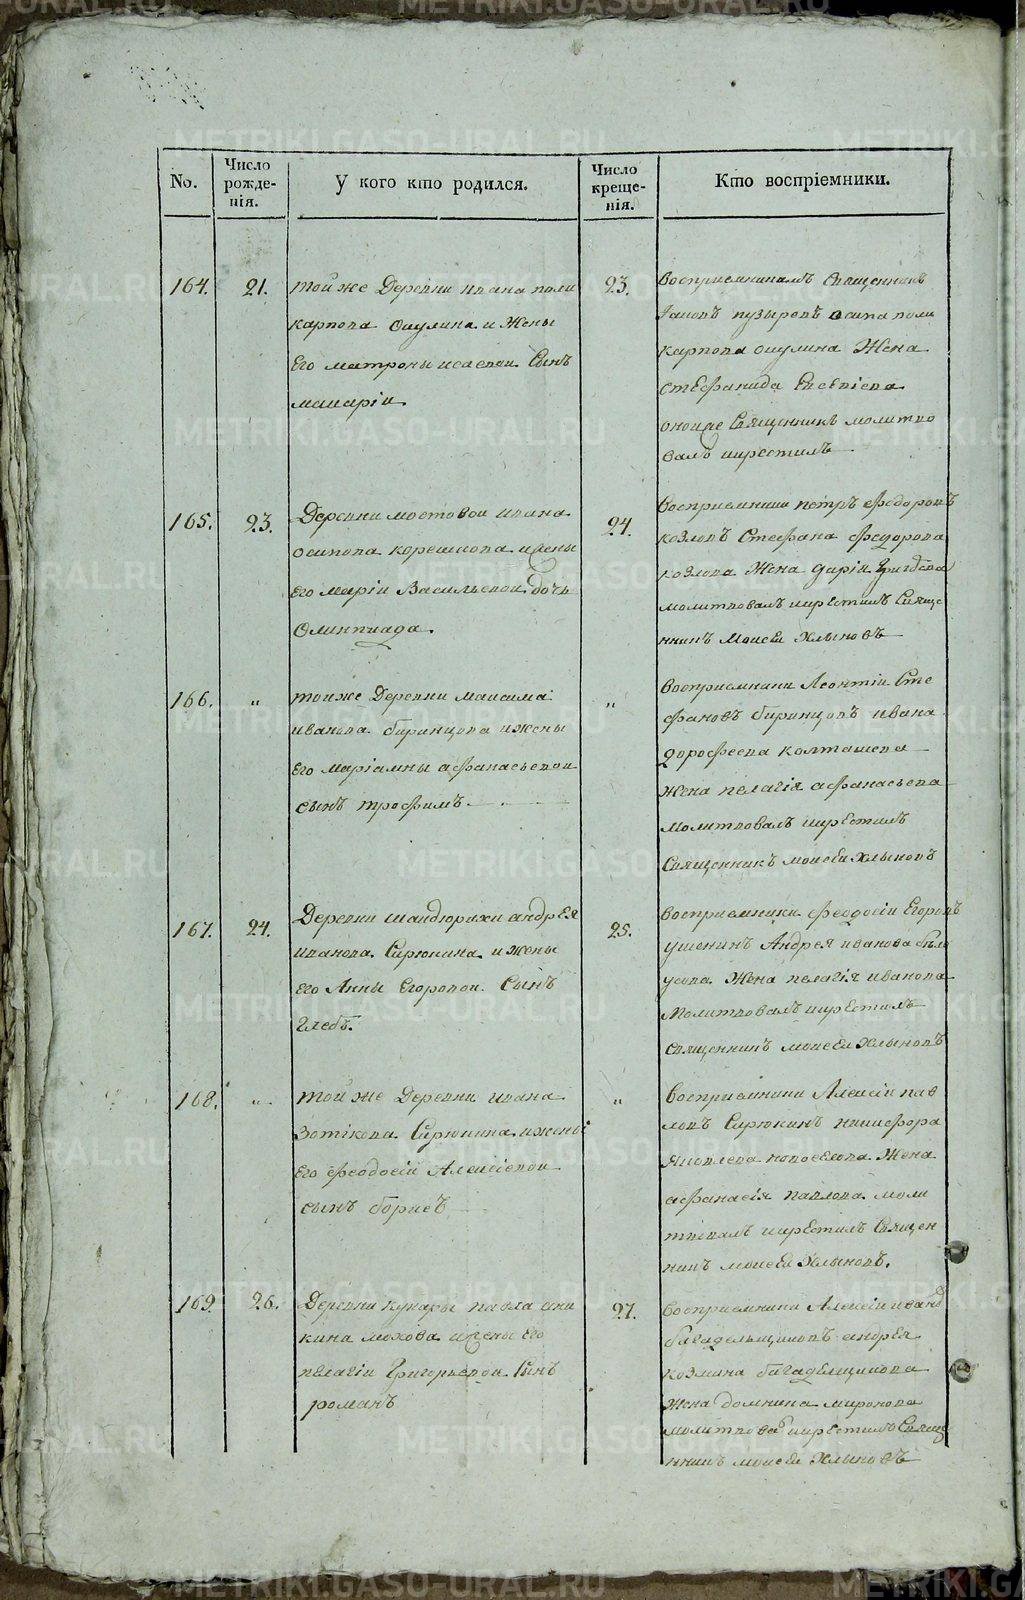 METRIKI.GASO-URAL.RU
No.
Число рожде-нія.
У кого кто родился.
Число креще-нія.
Кто воспріемники.
164.
21.
той же Деревни ивана поли
карпова Окулина и Жены
Его матроны исаевои Сынъ
макаріи
23.
восприемникамъ Священникъ
Іаковъ пузыровъ осипа поли
карпова окулина Жена
стефанида Евсевіева
онойже Священникъ молитво
валъ икрестилъ
165.
23.
Деревни мостовои ивана
осипова корешкова ижены
Его маріи Васильевои дочь
Олимпиада.
24.
восприемники петръ Федоровъ
козловъ Стефана Федорова
козлова Жена дарія
молитвовалъ икрестилъ Свяще
нникъ Моисей Хлыновъ
166.
"
тоиже Деревни максима
иванова биринцова ижены
Его маріамны афанасьевои
сынъ трофимъ
"
восприемники Леонтіи Сте
фановъ биринцовъ ивана
дорофеева колташева
жена пелагія афанасьева
молитвовалъ икрестилъ
Священникъ моисей Хлыновъ
167.
24.
Деревни шайдюрахи андрея
иванова Сирюкина и жены
Его Анны Егоровои Сынъ
Глебъ.
25.
восприемники феодосіи Егоровъ
ушенинъ Андрея иванова бело
усова Жена пелагія иванова
Молитвовалъ икрестилъ
священникъ моисей Хлыновъ
168.
"
той же Деревни ивана
Зотікова Сирюкина ижены
Его Феодосіи Алексіевои
сынъ борисъ
"
восприемники Алексіи пав
ловъ Сирюкинъ никифора
Яковлева новоселова Жена
афанасія павлова моли
твовалъ икрестилъ Священ
никъ моисей Хлыновъ.
169
26.
Деревни кунары павла ани
кина мохова ижены Его
пелагіи Григорьевои Сынъ
романъ
27.
восприемники Алексіи иванъ
багадельщиковъ андрея
козмина багаделщикова
Жена домнина миронова
молитвовалъ икрестилъ Свяще
нникъ моисей Хлыновъ